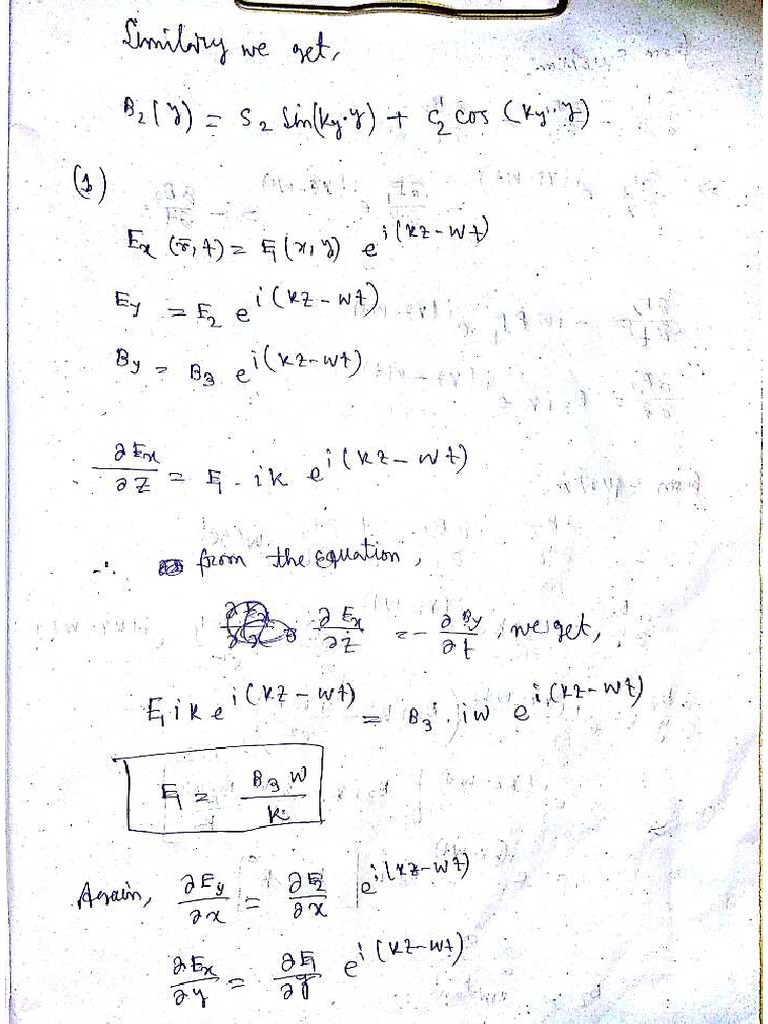 Similarly we get,
B₂(y) = S₂ Sin(ky·y) + C₂' cos (ky·y)
(1)
Ex (r̄, t) = E₁(x, y) e^{i(kz-wt)}
Ey = E₂ e^{i(kz-wt)}
By = B₃ e^{i(kz-wt)}
∂Ex/∂z = E₁ · ik e^{i(kz-wt)}
∴ from the equation,
∂Ex/∂z = - ∂By/∂t, we get,
E₁ik e^{i(kz-wt)} = B₃ · iw e^{i(kz-wt)}
E₁ = B₃w/k
Again, ∂Ey/∂x = ∂E₂/∂x e^{i(kz-wt)}
∂Ex/∂y = ∂E₁/∂y e^{i(kz-wt)}